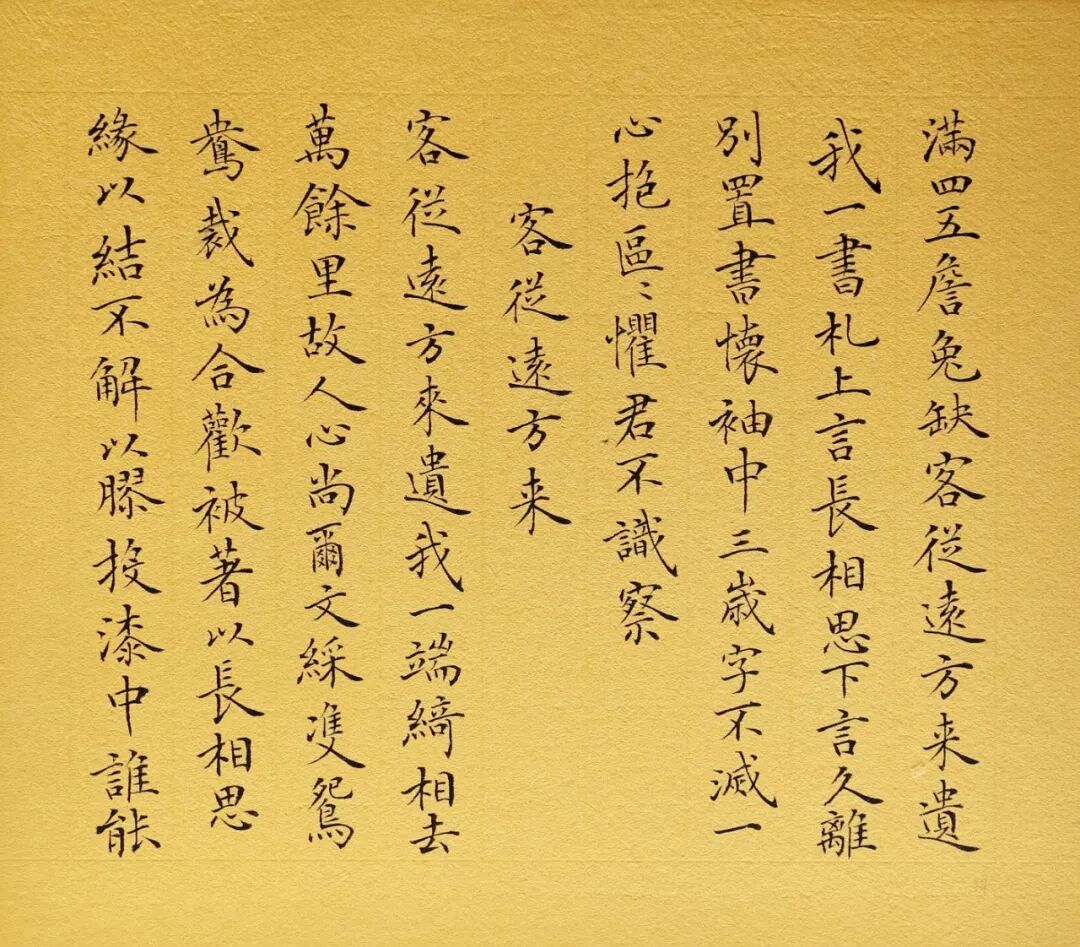 滿四五詹兔缺客從遠方来遺
我一書札上言長相思下言久離
別置書懷袖中三歲字不滅一
心抱區〻懼君不識察
客從遠方来
客從遠方來遺我一端綺相去
萬餘里故人心尚爾文綵雙鴛
鴦裁為合歡被著以長相思
緣以結不解以膠投漆中誰能